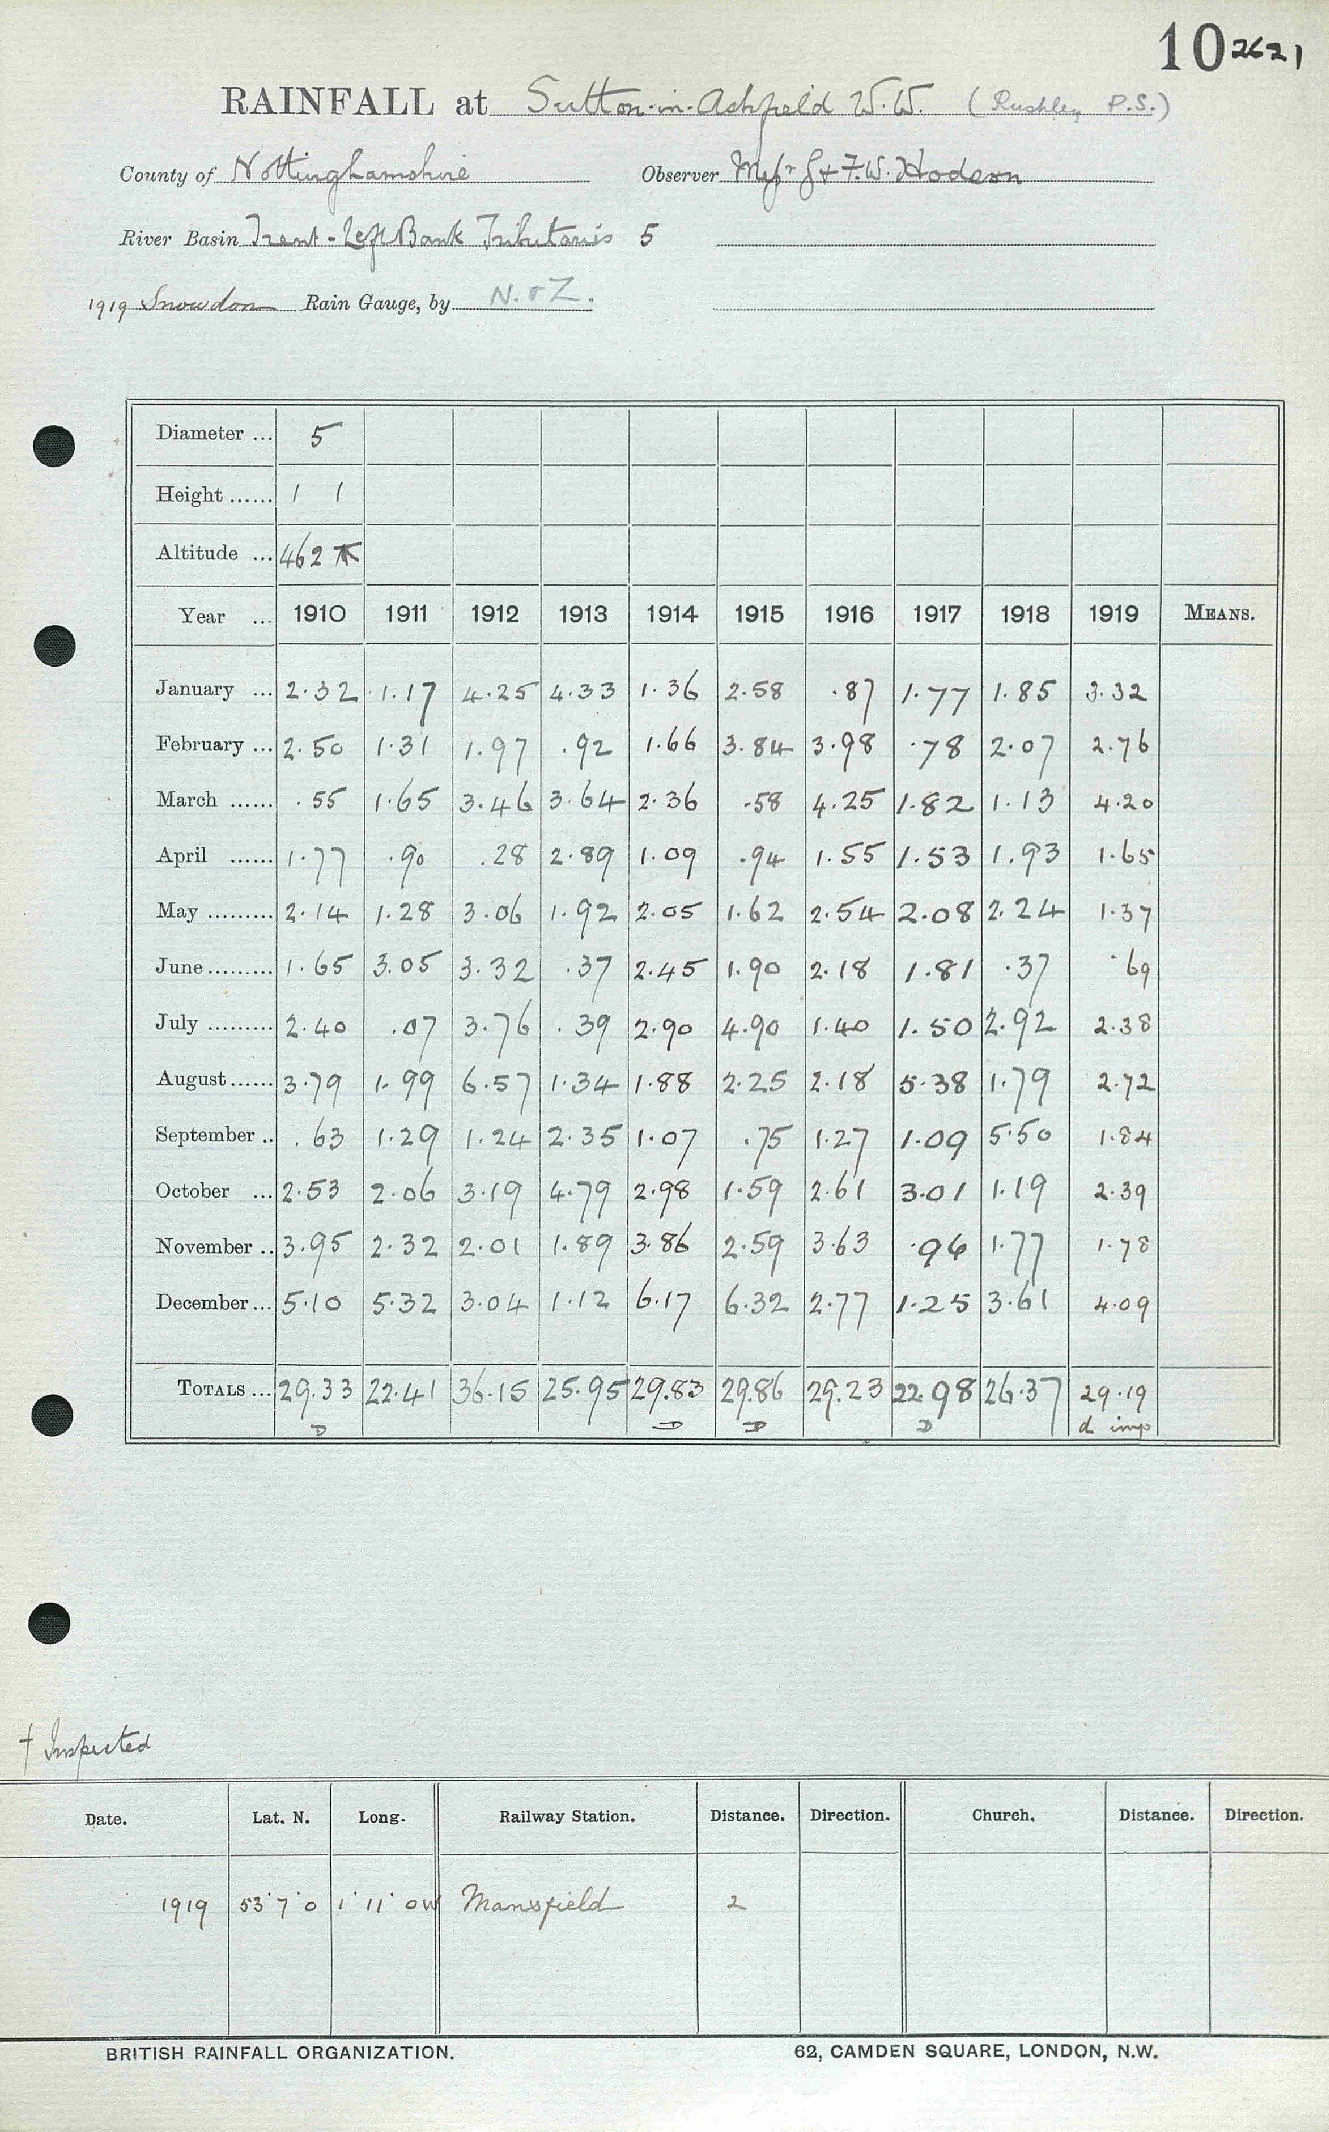 10 2621
RAINFALL at Sutton-in-Ashfield W.W. (Rushley P.S.)
County of Nottinghamshire Observer Messrs G & F.W. Hodson
River Basin Trent - Left Bank Tributaries 5
1919 Snowdon Rain Gauge, by N. & Z.
Diameter ... 5
Height ...... 1 1
Altitude ... 462
Year ... 1910 1911 1912 1913 1914 1915 1916 1917 1918 1919 MEANS.
January ... 2.32 1.17 4.25 4.33 1.36 2.58 .87 1.77 1.85 3.32
February ... 2.50 1.31 1.97 .92 1.66 3.84 3.98 .78 2.07 2.76
March ...... .55 1.65 3.46 3.64 2.36 .58 4.25 1.82 1.13 4.20
April ...... 1.77 .90 .28 2.89 1.09 .94 1.55 1.53 1.93 1.65
May ......... 2.14 1.28 3.06 1.92 2.05 1.62 2.54 2.08 2.24 1.37
June ......... 1.65 3.05 3.32 .37 2.45 1.90 2.18 1.81 .37 .69
July ......... 2.40 .07 3.76 .39 2.90 4.90 1.40 1.50 2.92 2.38
August ...... 3.79 1.99 6.57 1.34 1.88 2.25 2.18 5.38 1.79 2.72
September .. .63 1.29 1.24 2.35 1.07 .75 1.27 1.09 5.50 1.84
October ... 2.53 2.06 3.19 4.79 2.98 1.59 2.61 3.01 1.19 2.39
November .. 3.95 2.32 2.01 1.89 3.86 2.59 3.63 .96 1.77 1.78
December ... 5.10 5.32 3.04 1.12 6.17 6.32 2.77 1.25 3.61 4.09
TOTALS ... 29.33 22.41 36.15 25.95 29.83 29.86 29.23 22.98 26.37 29.19
D D D D d imp
† Inspected
Date. Lat. N. Long. Railway Station. Distance. Direction. Church. Distance. Direction.
1919 53° 7' 0 1° 11' 0 W Mansfield 2
BRITISH RAINFALL ORGANIZATION. 62, CAMDEN SQUARE, LONDON, N.W.